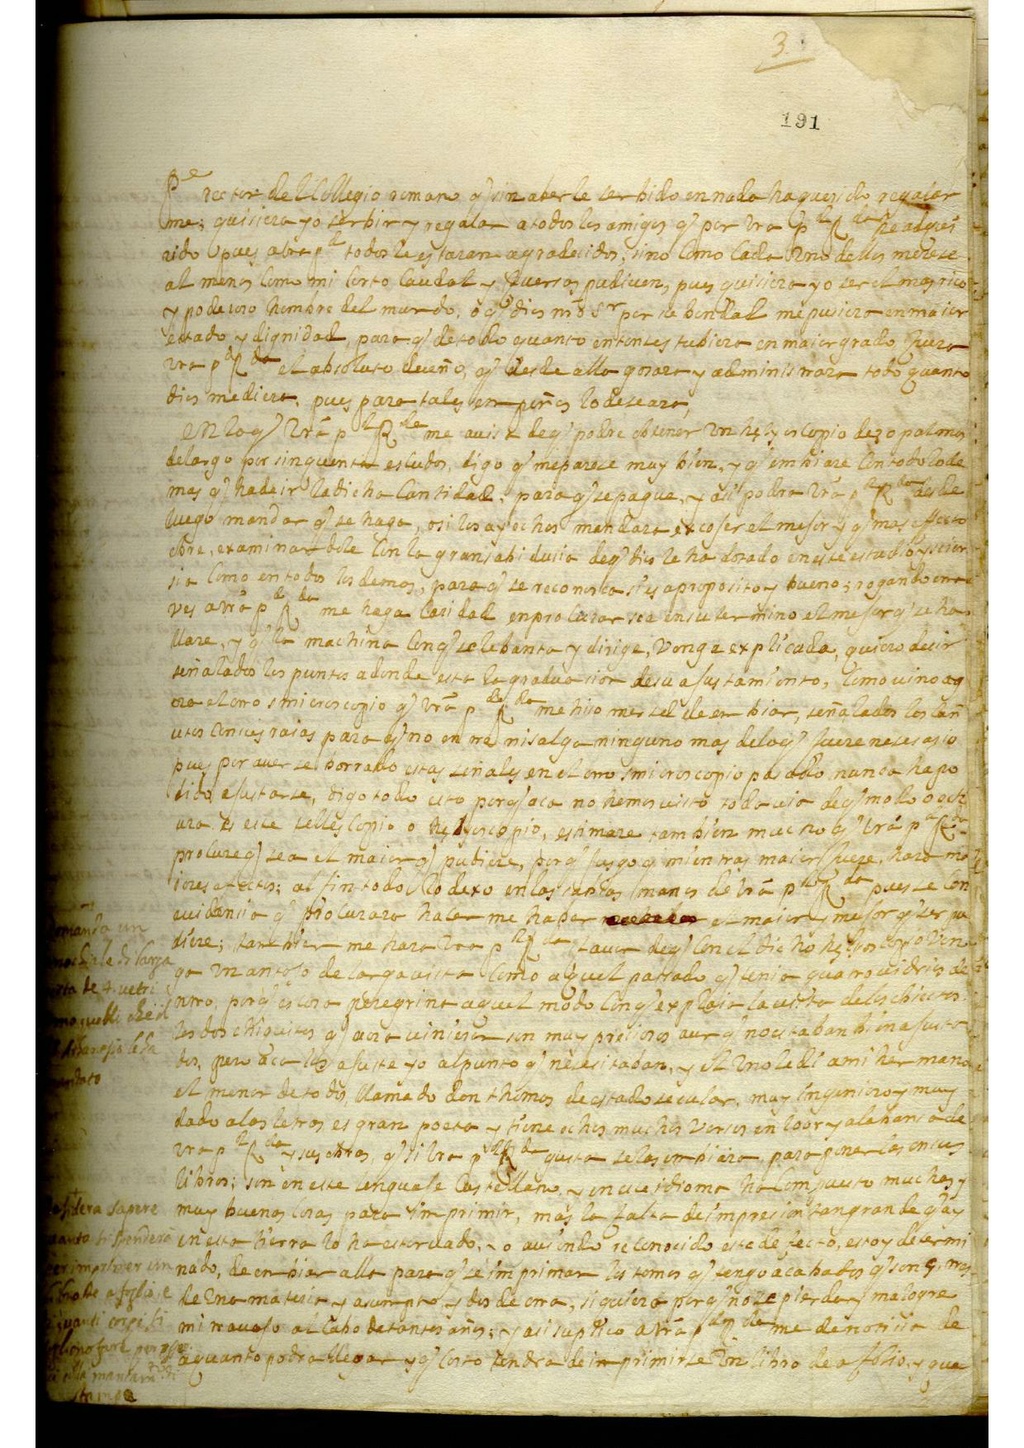 3
191
P.e rector del Collegio romano q' sin aberle serbido en nada ha querido regalar
me; quisiera yo serbir y regalar a todos los amigos q' por Vra p.d R.da he adqui
rido pues a Vra p.d todos le estaran agradecidos, sino como cada Uno dellos merese
al menos como mi corto Caudal y fuersas pudieren, pues quisiera yo ser el mas rico
y poderoso hombre del mundo, o q' dios nro Sr por su bondad me pusiera en maior
estado y dignidad, para q' de todo quanto entonses tubiera en maior grado fuera
Vra p.d R.da el absoluto dueño, q' desde alla gosara y administrara todo quanto
dios me diera, pues para tales empeños lo deseara,
En lo q' Vra p.d R.da me avisa de q' podre obtener Un helioscopio de 30 palmos
de largo por sinquenta escudos, digo q' me parece muy bien, y q' embiare con todo lo de
mas q' ha de ir la dicha Cantidad, para q' se pague, y asi podra Vra p.d R.da desde
luego mandar q' se haga, o si los ay echos mandara escoser el mejor y q' mas effecto
obre, examinandole con la gran sabiduria de q' dios le ha dotado en este estudio y scien
sia como en todos los demas, para q' se reconosca si es aproposito y bueno; rogando otra
ves a Vra p.d R.da me haga Caridad en procurar sea en su termino el mejor q' se ha
llare, y q' la machina con q' se lebanta y dirige, venga explicada, quiero decir
señalados los puntos adonde esta la graduacion de su ajustamiento, como vino ag
ora el otro smicroscopio q' Vra p.d R.da me hiso mersed de embiar, señalados los cañ
utos con sus raias para q' no entre ni salga ninguno mas de lo q' fuere nesesario
pues por averse borrado estas señales en el otro smicroscopio pasado nunca ha po
dido ajustarse, digo todo esto porq' aca no hemos visto todavia de q' modo o echu
ra es este tellescopio o helioscopio, estimare tambien mucho q' Vra p.d R.da
procure q' sea el maior q' pudiere, porq' jusgo q' mientras maior fuere, hara me
iores efectos; al fin todo lo dexo en las santas manos de Vra p.d R.da pues te con
evidencia q' procurara haserme haber el maior y mejor q' ser pu
diere; tambien me hara Vra p.d R.da favor de q' con el dicho heliosco pio ven
ga Un antojo de larga vista como aquel pasado q' tenia quatro vidrios de
ntro, porq' es cosa peregrina aquel modo con q' explaia la vista de los obiectos.
los dos chiquitos q' aora vinieron son muy presiosos aunq' no estaban bien ajusta
dos, pero aca los ajuste yo al punto q' nesesitaban, y el Uno le di a mi hermano
el menor de todos, llamado don thomas de estado secular, muy ingenioso y muy
dado a las letras es gran poeta y tiene echos muchos versos en loor y alabansa de
Vra p.d R.da y sus obras q' si Vra p.d R.da gusta se las embiara para ponerlas en sus
libros; son en este lenguaje Castellano, y en su idioma ha compuesto muchas y
muy buenas cosas para imprimir, mas la falta de impresion tan grande q' ay
en esta tierra lo ha estorvado, yo aviendo reconocido este defecto, estoy determi
nado, de embiar alla para q' se impriman los tomos q' tengo acabados q' son 5, tres
de Una materia y asumpto y dos de otra, siquiera porq' no se pierda y malogre
mi travajo al cabo de tantos años; y asi suplico a Vra p.d R.da me de noticia de
a quanto podra llegar y q' costo tendra de imprimirse Un libro de a folio, y que